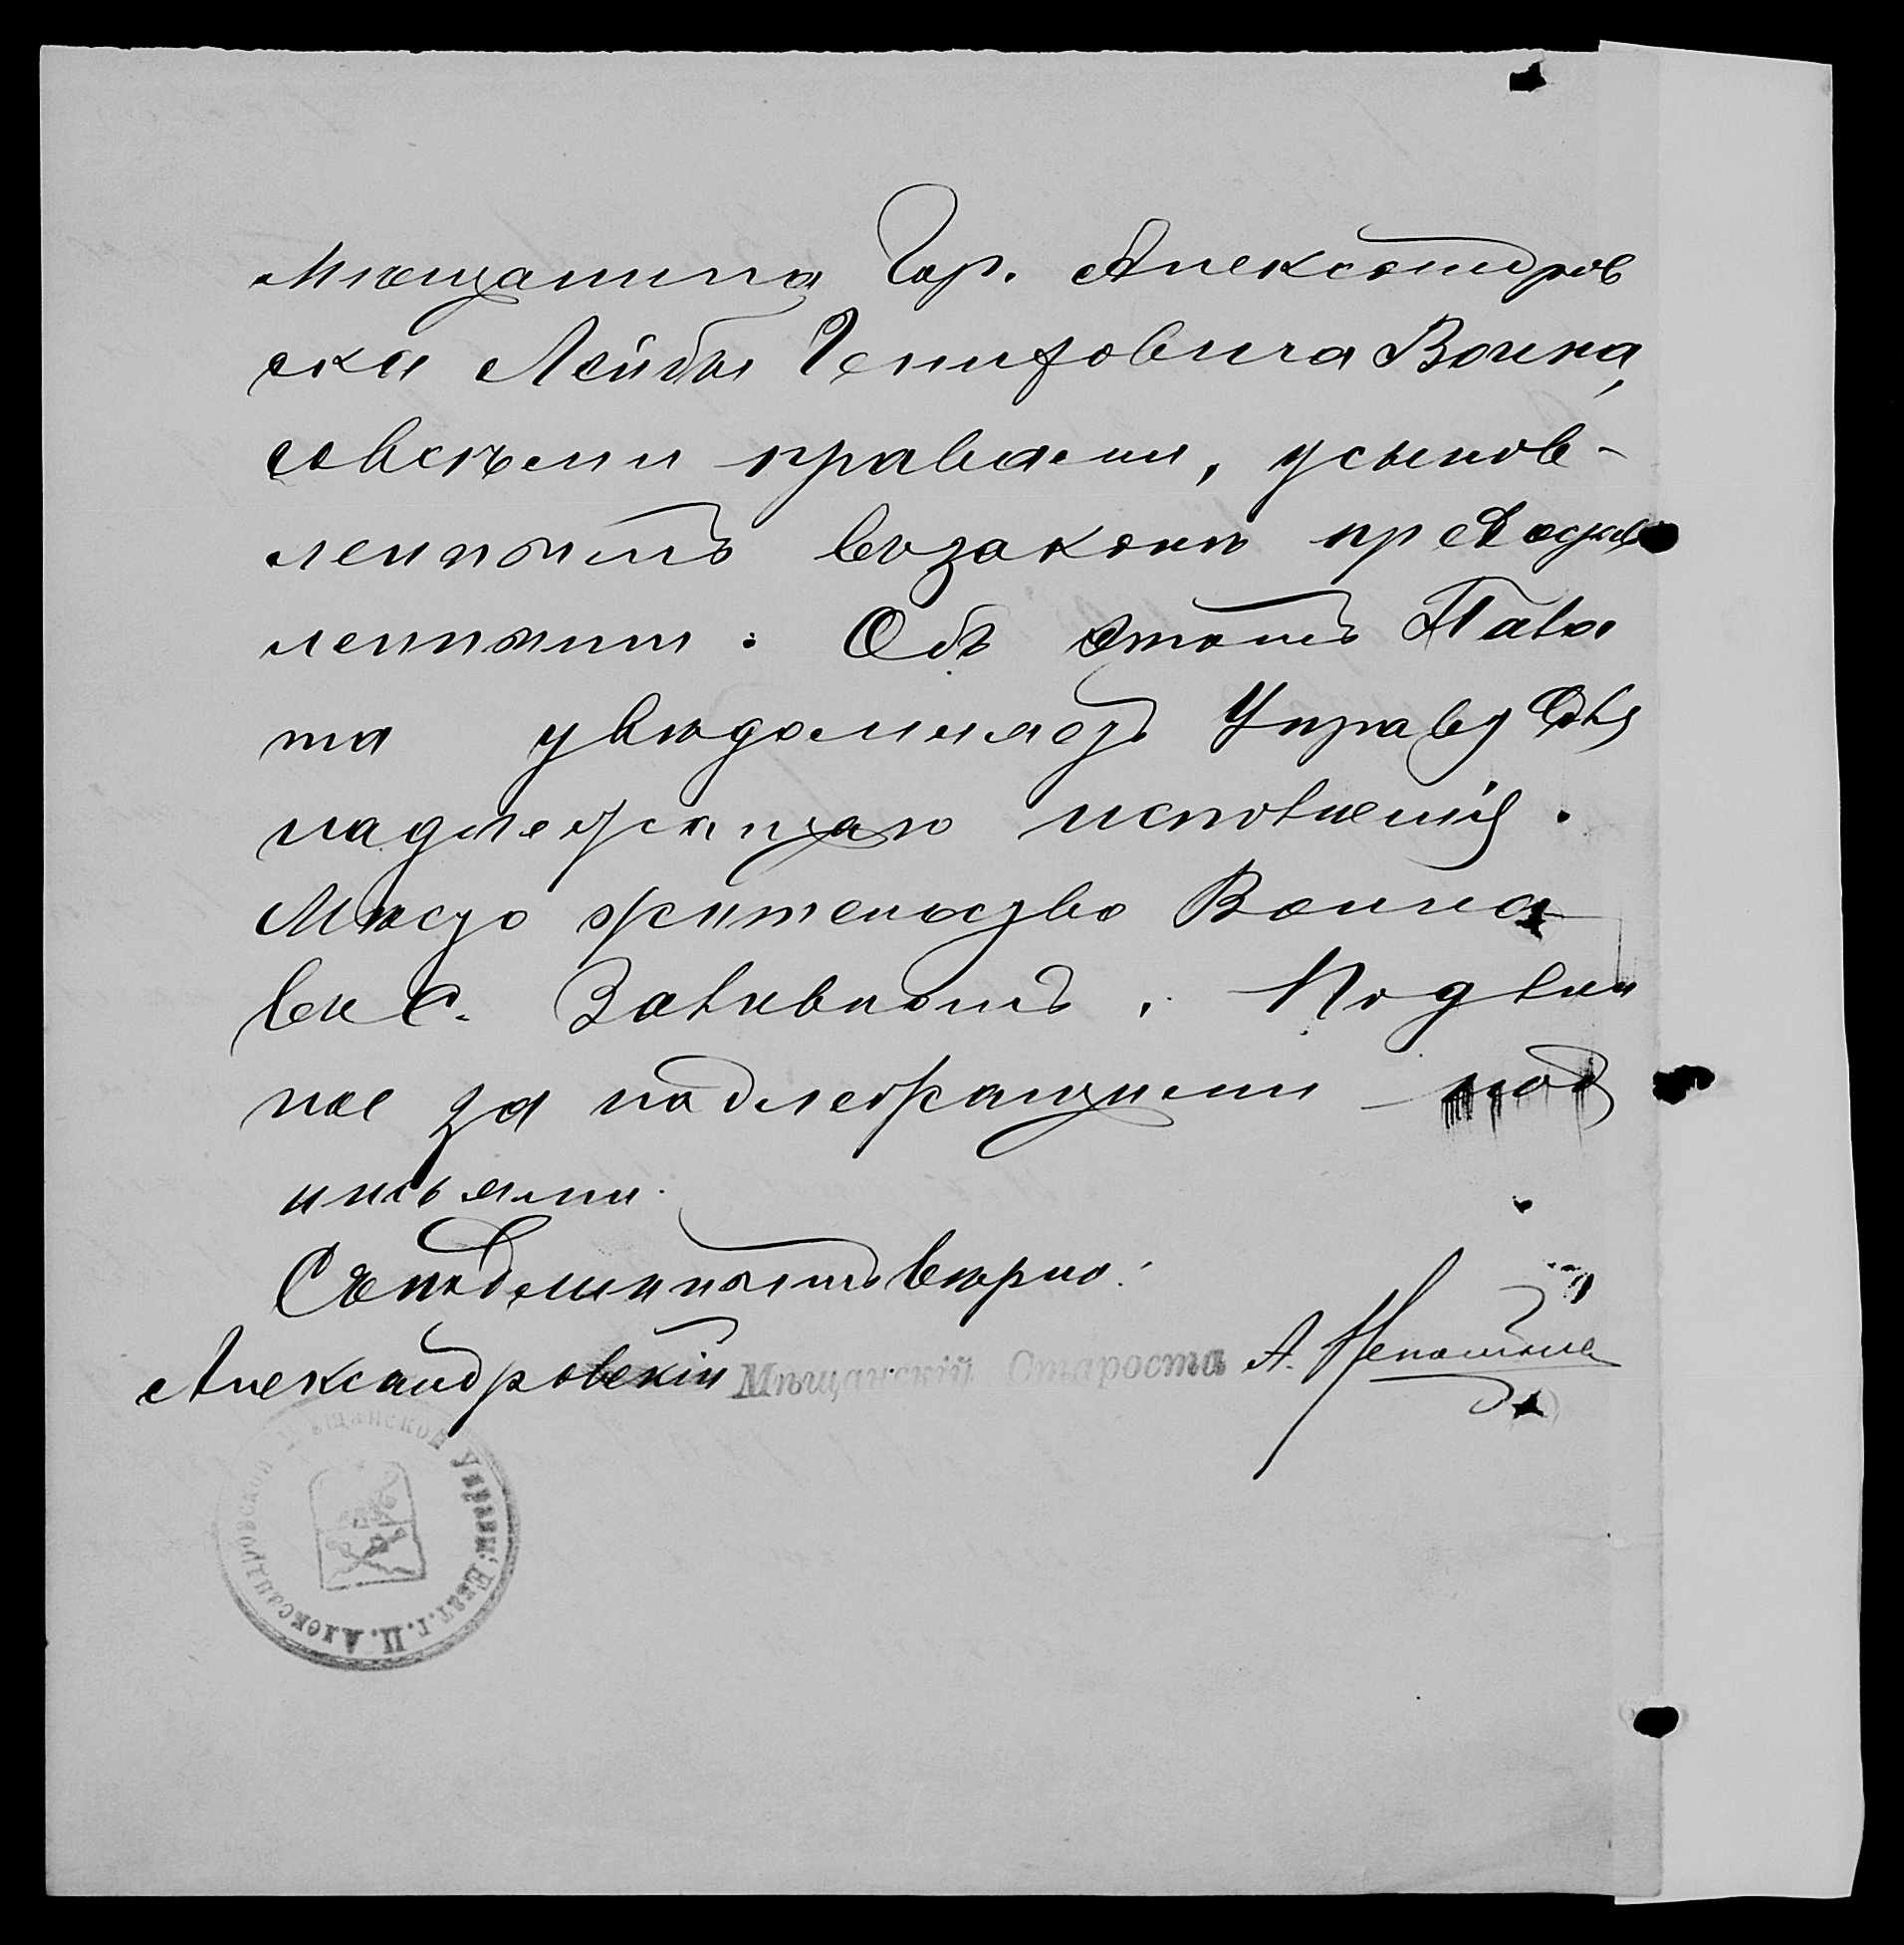 мѣщанина Гор. Александров
ска Лейбы Гениховича Воина,
совсѣми правами, усынов-
леннымъ взаконѣ предостав
ленными. Объ этомъ Пала
та увѣдомляетъ Управу для
надлежащаго исполненія.
Мѣсто жительство Воина
въ с.
Подлин
ное за надлежащими под
письями.
Съ подлиннымъ вѣрно:
Александровскій Мѣщанскій Староста А.
Александровской Мѣщанской Управы. Екат. г. П.